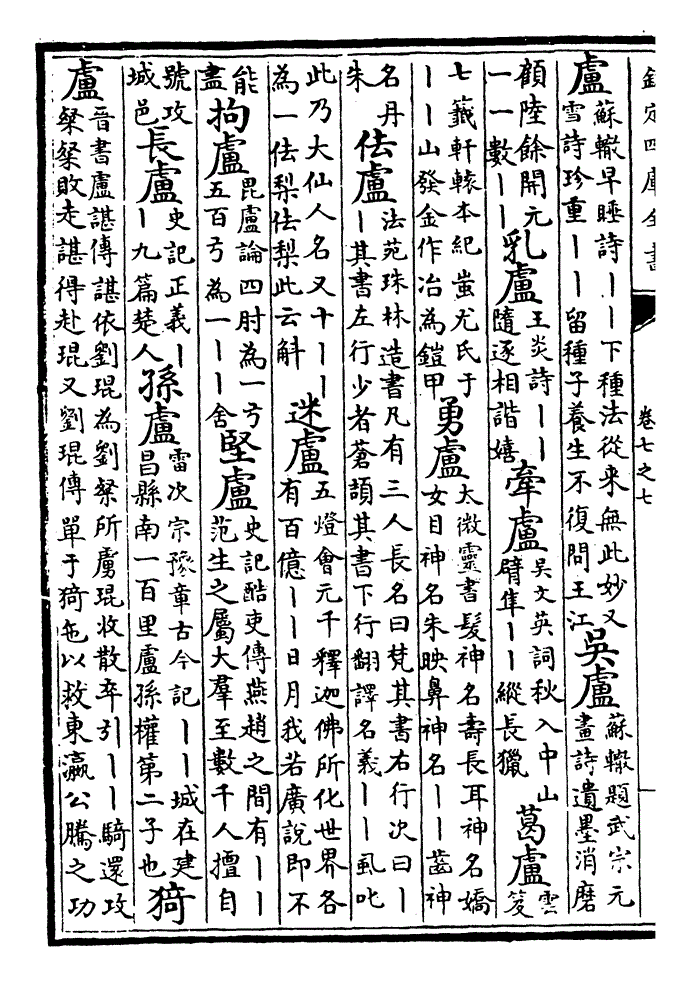 欽定四庫全書 卷七之七
盧蘇轍早睡詩丨丨下種法從来無此妙又雪詩珍重丨丨留種子養生不復問王江吳盧蘇轍題武宗元畫詩遺墨消磨
顧陸餘開元一一數丨丨乳盧王炎詩丨丨隨逐相諧嬉牽盧吳文英詞秋入中山臂隼丨丨縱長獵葛盧雲笈
七籤軒轅本紀蚩尤氏于丨丨山發金作冶為鎧甲勇盧太微靈書髮神名壽長耳神名嬌女目神名朱映鼻神名丨丨齒神
名丹朱佉盧法苑珠林造書凡有三人長名曰梵其書右行次曰丨丨其書左行少者蒼頡其書下行翻譯名義丨丨虱吒
此乃大仙人名又十丨丨為一佉梨佉梨此云斛迷盧五燈會元千釋迦佛所化世界各有百億丨丨日月我若廣說即不
能盡拘盧毘盧論四肘為一弓五百弓為一丨丨舍堅盧史記酷吏傳燕趙之間有丨丨范生之屬大羣至數千人擅自
號攻城邑長盧史記正義丨丨九篇楚人孫盧雷次宗豫章古今記丨丨城在建昌縣南一百里盧孫權第二子也猗
盧晉書盧諶傳諶依劉琨為劉粲所虜琨收散卒引丨丨騎還攻粲粲敗走諶得赴琨又劉琨傳單于猗㐌以救東瀛公騰之功